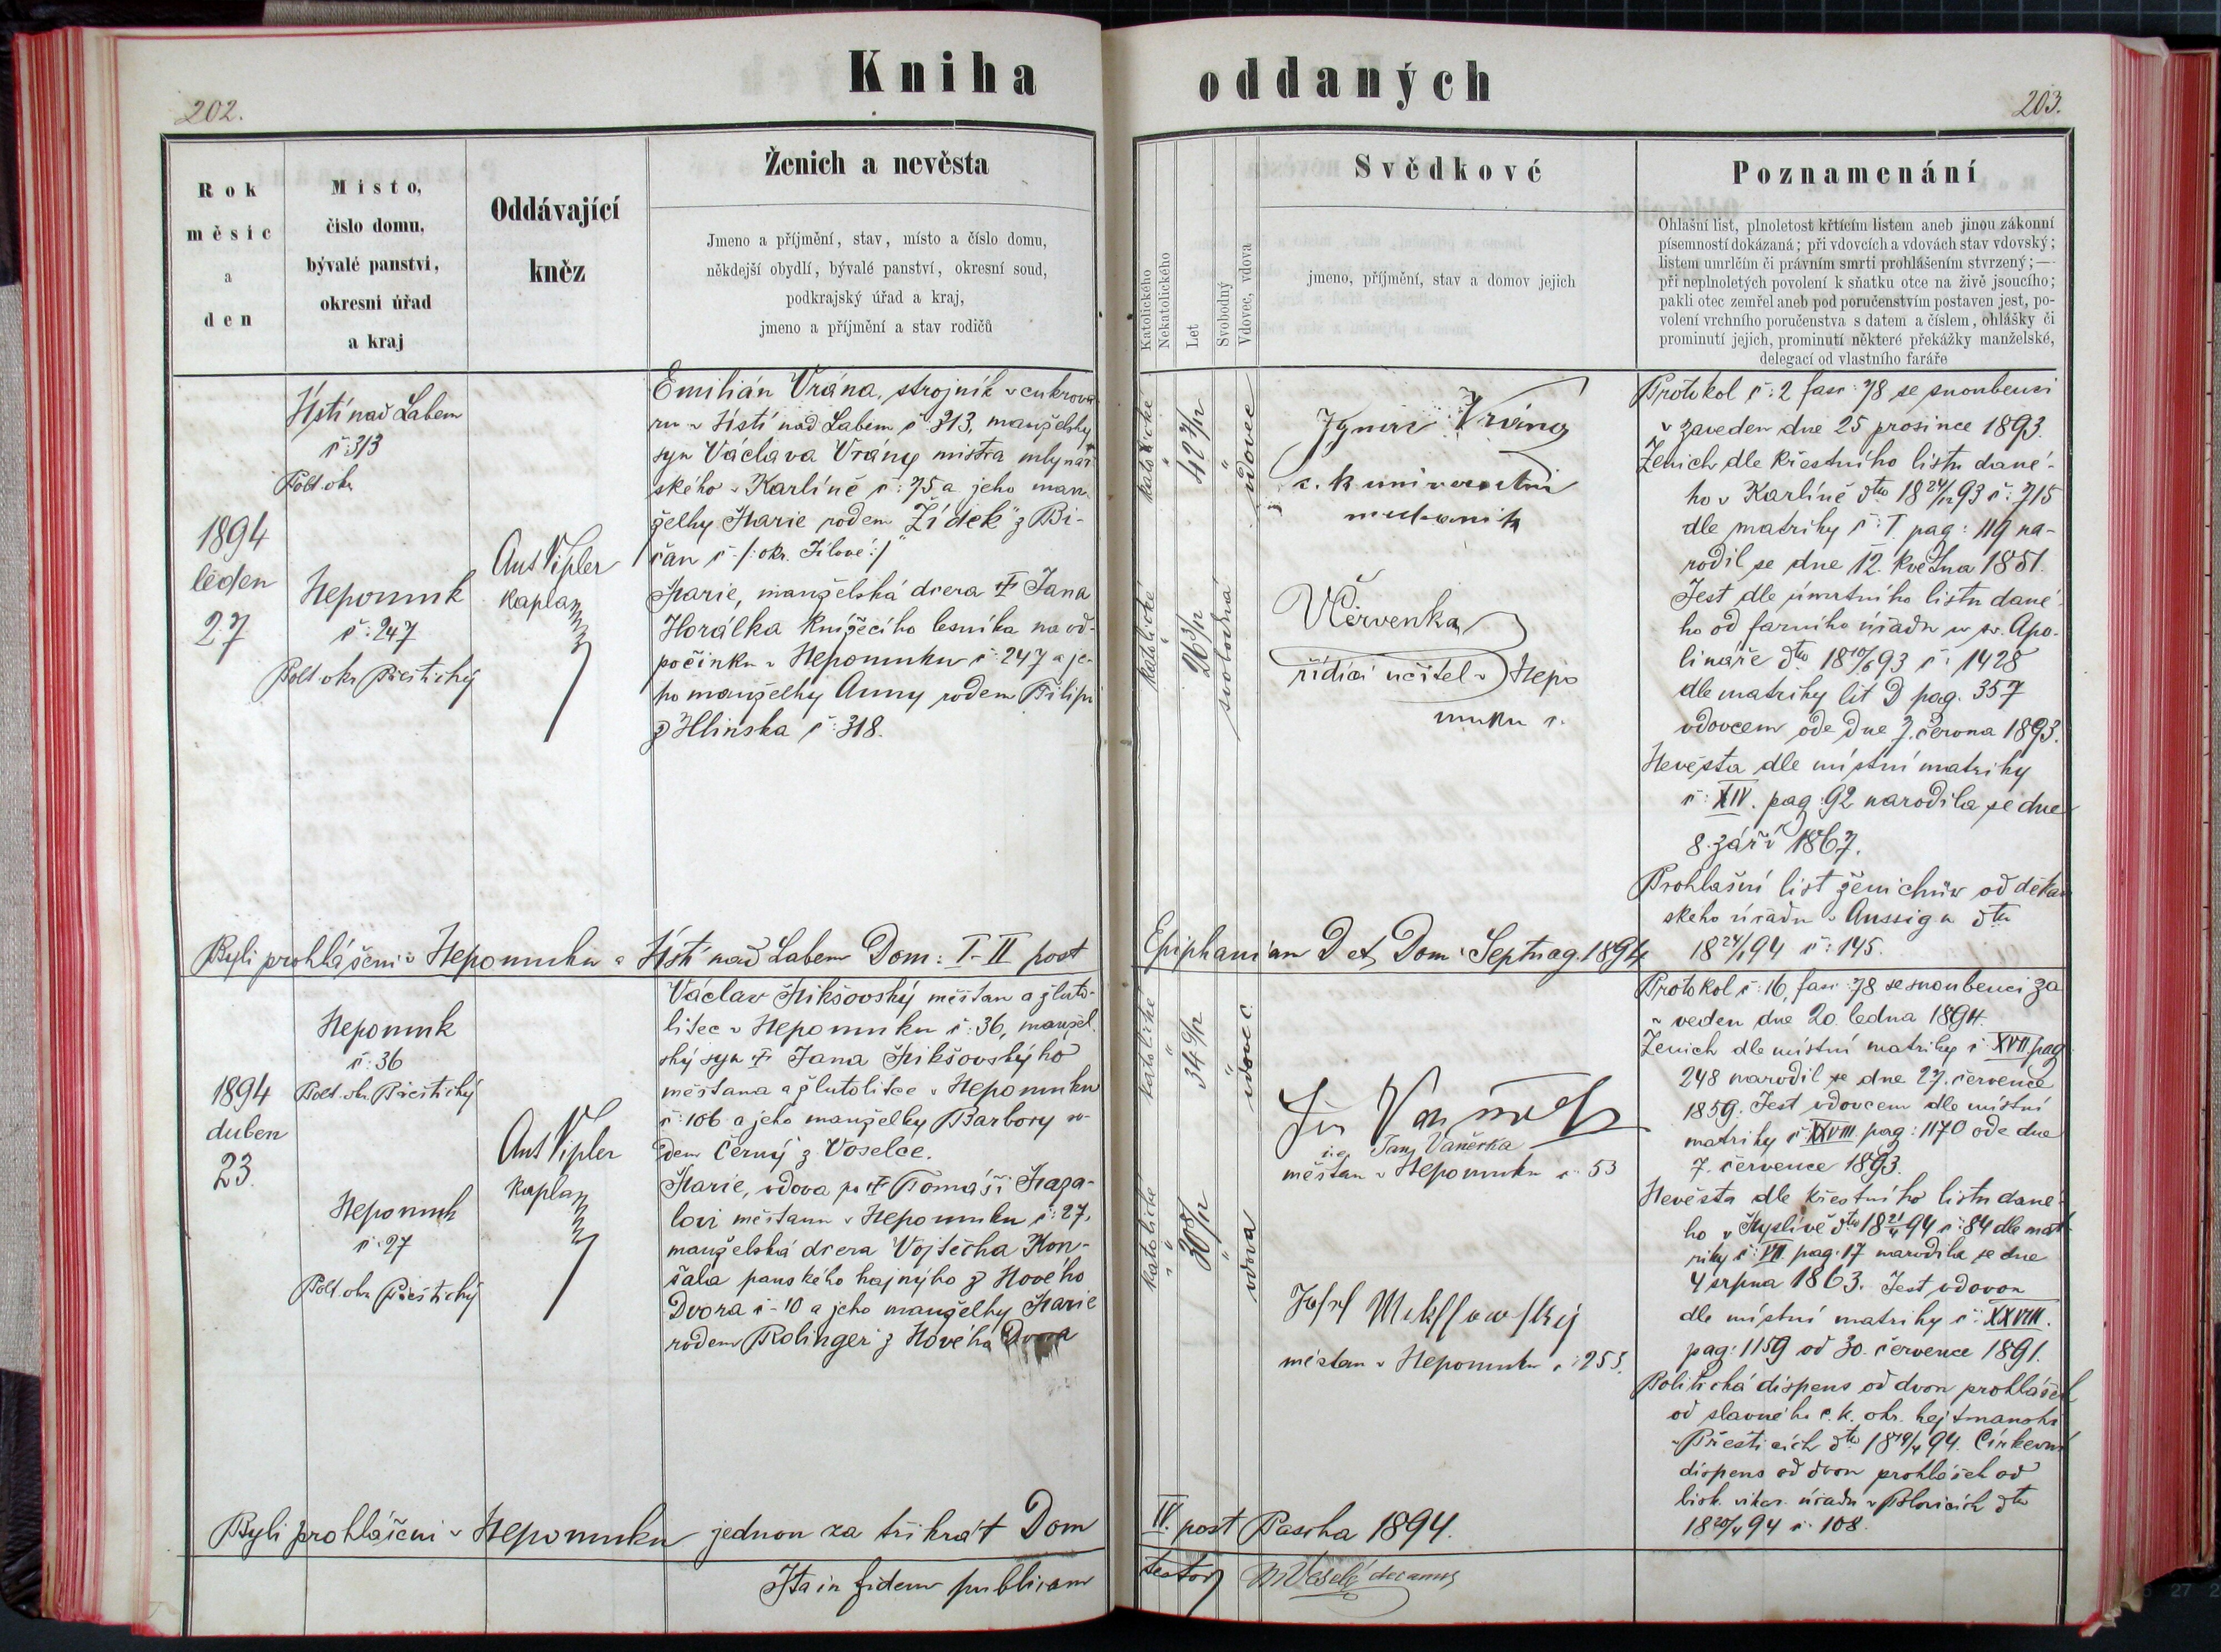 Kniha
oddaných
202.
203.
Rok
měsíc
a
den
Místo,
číslo domu,
bývalé panství,
okresní úřad
a kraj
Oddávající
kněz
Ženich a nevěsta
Jmeno a příjmění, stav, místo a číslo domu,
někdejší obydlí, bývalé panství, okresní soud,
podkrajský úřad a kraj,
jmeno a příjmění a stav rodičů
Katolického
Nekatolického
Let
Svobodný
Vdovec, vdova
Svědkové
jmeno, příjmění, stav a domov jejich
Poznamenání
Ohlašní list, plnoletost křtícím listem aneb jinou zákonní
písemností dokázaná; při vdovcích a vdovách stav vdovský;
listem umrlčím či právním smrti prohlášením stvrzený;—
při neplnoletých povolení k sňatku otce na živě jsoucího;
pakli otec zemřel aneb pod poručenstvím postaven jest, po-
volení vrchního poručenstva s datem a číslem, ohlášky či
prominutí jejich, prominutí některé překážky manželské,
delegací od vlastního faráře
1894
leden
27
Ústí nad Labem
č: 313
Polt. okr
Nepomuk
č: 247
Polt okr Přestický
Ant Vipler
kaplan
Emilián Vrána, strojník v cukrova-
ru v Ústí nad Labem č. 313, manželský
syn Václava Vrány mistra mlynář
ského v Karlíně č: 75 a jeho man
želky Marie rodem "Žídek" z Bi-
čan č - /: okr. Jílové :/
Marie, manželská dcera † Jana
Horálka knížecího lesníka na od-
počinku v Nepomuku č: 247 a je-
ho manželky Anny rodem Filipi
z Hlinska č: 318.
katolické
"
42 7/12
"
vdovec
katolické
"
26 3/12
svobodná
Vrána
c. k. universitní
mechanik
VČervenka
řídící učitel v Nepo
muku č.
Protokol č: 2 fasc: 78 se snoubenci
v zaveden dne 25 prosince 1893.
Ženich dle křestního listu dané-
ho v Karlíně dto 18 24/12 93 č: 715
dle matriky č: I. pag: 119 na-
rodil se dne 12. května 1851.
Jest dle úmrtního listu dané-
ho od farního úřadu u sv. Apo-
lináře dto 18 10/6 93 č: 1428
dle matriky lit D pag. 357
vdovcem ode dne 7. června 1893.
Nevěsta dle místní matriky
č: XIV. pag: 92 narodila se dne
8. září 1867.
Prohlašní list ženichův od děkan
ského úřadu v Aussig n dto
18 24/1 94 č: 145.
Byli prohlášeni v Nepomuku a Ústí nad Labem Dom: I-II post
Epiphaniam D et Dom: Septuag. 1894
1894
duben
23.
Nepomuk
č: 36
Polt. okr Přestický
Nepomuk
č: 27
Polt. okr Přestický
Ant Vipler
kaplan
Václav Mikšovský měšťan a žluto-
litec v Nepomuku č: 36, manžel.
ský syn † Jana Mikšovskýho
měšťana a žlutolitce v Nepomuku
č: 106 a jeho manželky Barbory ro-
dem Černý z Voselce.
Marie, vdova po † Tomáši Maza-
lovi měšťanu v Nepomuku č: 27,
manželská dcera Vojtěcha Kon-
šala panského hajnýho z Nového
Dvora č - 10 a jeho manželky Marie
rodem Rolinger z Nového Dvora
katolické
"
34 9/12
"
vdovec
katolické
"
30 8/12
"
vdova
Jan Vaněček
měšťan v Nepomuku č: 53
Josef Mikssowský
měšťan v Nepomuku č: 253.
Protokol č: 16, fasc: 78 se snoubenci za
v veden dne 20. ledna 1894.
Ženich dle místní matriky č XVII. pag
248 narodil se dne 27. července
1859. Jest vdovcem dle místní
matriky č: XXVIII pag: 1170 ode dne
7. července 1893.
Nevěsta dle křestního listu dané-
ho v Myslívě dto 18 21/4 94 č: 84 dle mat
riky č: VII. pag: 17 narodila se dne
4 srpna 1863. Jest vdovou
dle místní matriky č: XXVIII.
pag: 1159 od 30. července 1891.
Politická dispens od dvou prohlášek
od slavného c. k. okr. hejtmanství
v Přesticích dto 18 19/4 94. Církevní
dispens od dvou prohlášek od
bisk. vikar. úřadu v Blovicích dto
18 20/4 94 č: 108.
Byli prohlášeni v Nepomuku jednou za třikrát Dom
IV. post Pascha 1894.
Ita in fidem publicam
testor
Veselý decanus